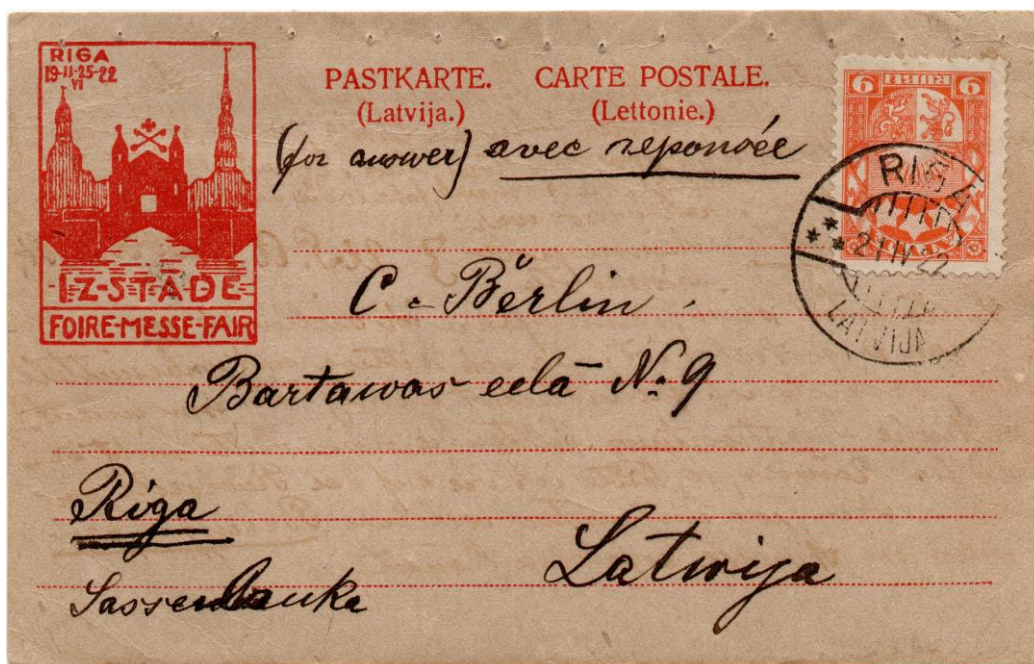 RIGA
19-II-25-22
VI
IZ-STADE
FOIRE-MESSE-FAIR
PASTKARTE. CARTE POSTALE.
(Latvija.) (Lettonie.)
(for answer) avec reponsée
6 6
RIGA
21 IV 22
LATVIJA
C. Bērlin.
Bartawas eelā N. 9
Riga
Latwija
Sassenlauka